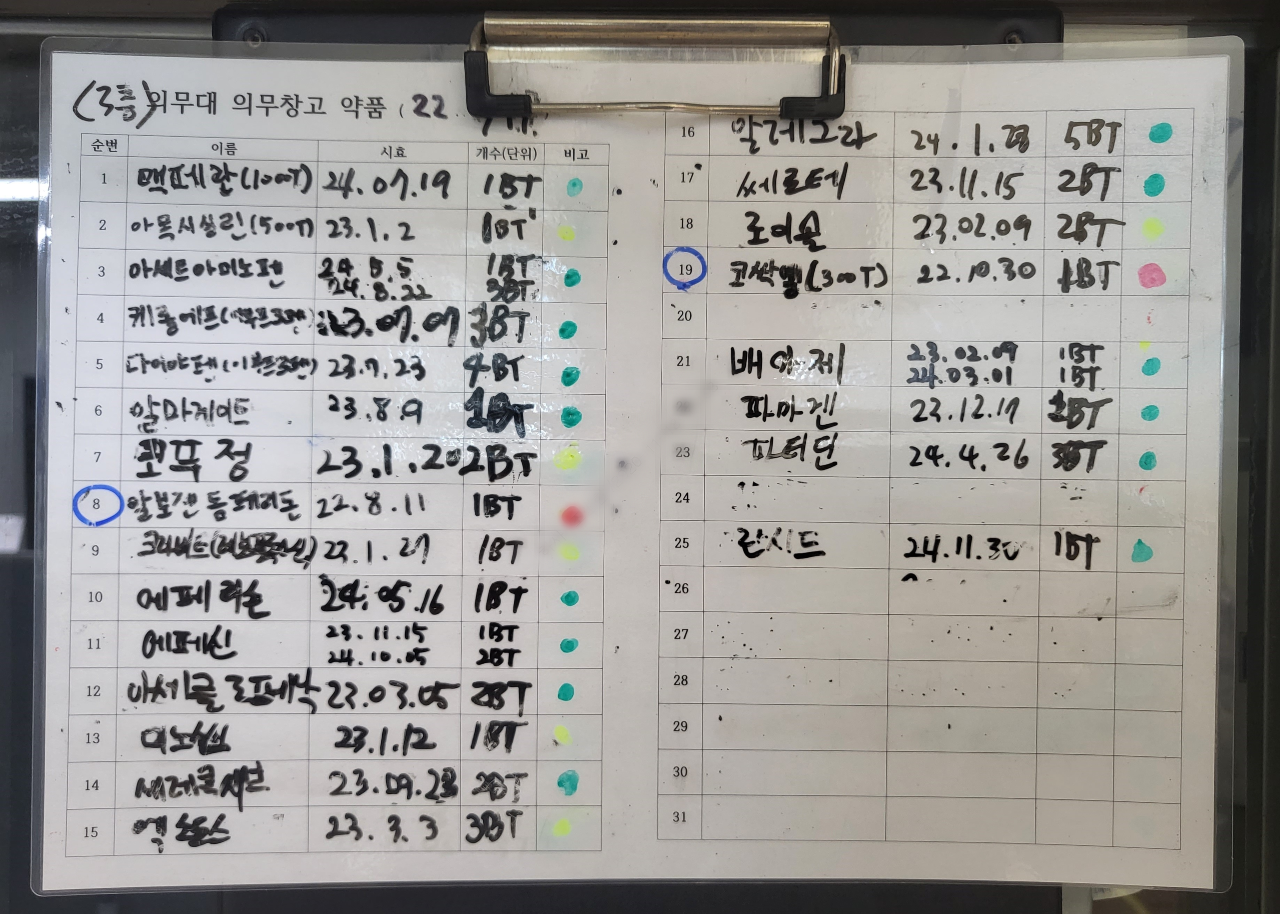 (3층)의무대 의무창고 약품 (22
순번 이름 시효 개수(단위) 비고
1 맥페란(100T) 24.07.19 1BT
2 아목시실린(500T) 23.1.2 1BT
3 아세트아미노펜 24.5.5 1BT
24.8.22 3BT
4 23.07.07 3BT
5 23.7.23 4BT
6 알마게이트 23.8.9 1BT
7 코푸정 23.1.20 2BT
8 22.8.11 1BT
9 23.1.27 1BT
10 에페릭손 24.05.16 1BT
11 에페신 23.11.15 1BT
24.10.05 2BT
12 아세클로페낙 23.03.05 2BT
13 23.1.12 1BT
14 23.09.23 2BT
15 엑소돈스 23.3.3 3BT
16 알레그라 24.1.28 5BT
17 씨로테 23.11.15 2BT
18 로이솔 23.02.09 2BT
19 코싹엘(300T) 22.10.30 1BT
20
21 배아제 23.02.09 1BT
24.03.01 1BT
파마겐 23.12.17 2BT
23 파티딘 24.4.26 3BT
24
25 린시드 24.11.30 1BT
26
27
28
29
30
31